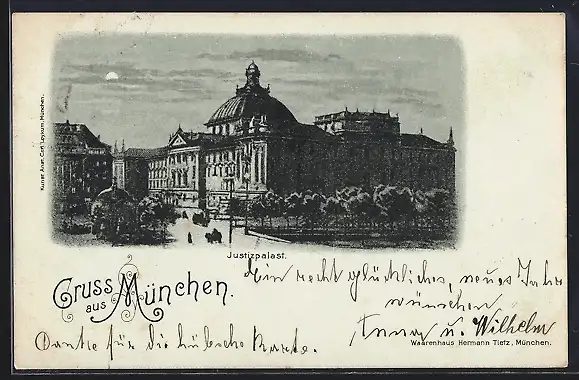 Kunst Anst. Carl Laykum, München.
Justizpalast.
Gruss
aus München.
Ein recht glückliches, neues Jahr
wünschen
Anna u. Wilhelm
Danke für die hübsche Karte.
Waarenhaus Hermann Tietz, München.